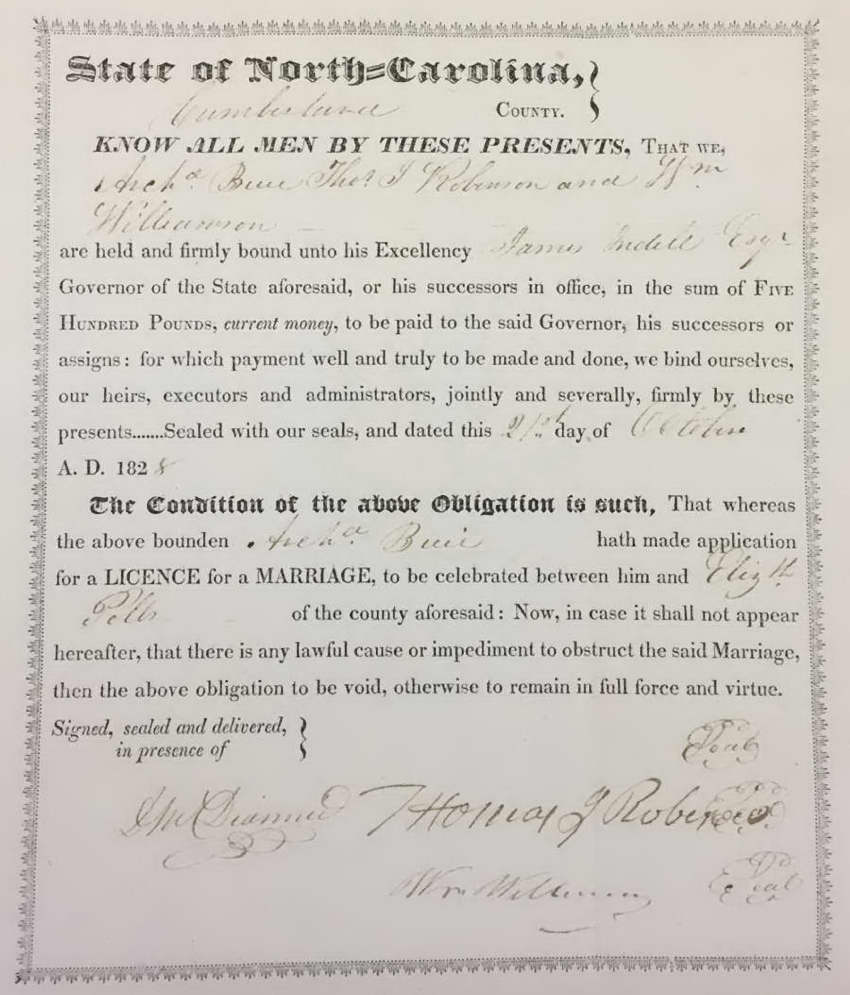 State of North=Carolina,
Cumberland COUNTY.
KNOW ALL MEN BY THESE PRESENTS, THAT WE,
Archd. Buie Thos. J Robinson and Wm
Williamson
are held and firmly bound unto his Excellency James Iredell Esqr
Governor of the State aforesaid, or his successors in office, in the sum of FIVE
HUNDRED POUNDS, current money, to be paid to the said Governor, his successors or
assigns: for which payment well and truly to be made and done, we bind ourselves,
our heirs, executors and administrators, jointly and severally, firmly by these
presents.......Sealed with our seals, and dated this day of October
A. D. 1828
The Condition of the above Obligation is such, That whereas
the above bounden Archd. Buie hath made application
for a LICENCE for a MARRIAGE, to be celebrated between him and Elizth
of the county aforesaid: Now, in case it shall not appear
hereafter, that there is any lawful cause or impediment to obstruct the said Marriage,
then the above obligation to be void, otherwise to remain in full force and virtue.
Signed, sealed and delivered,
in presence of
Seal
Thomas J Robinson Seal
Wm Williamson Seal